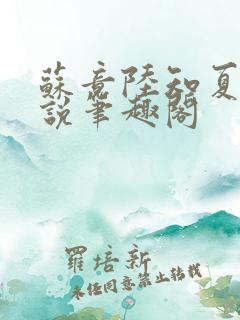 蘇意陸知夏
說筆趣閣
羅培新
未經同意禁止轉載